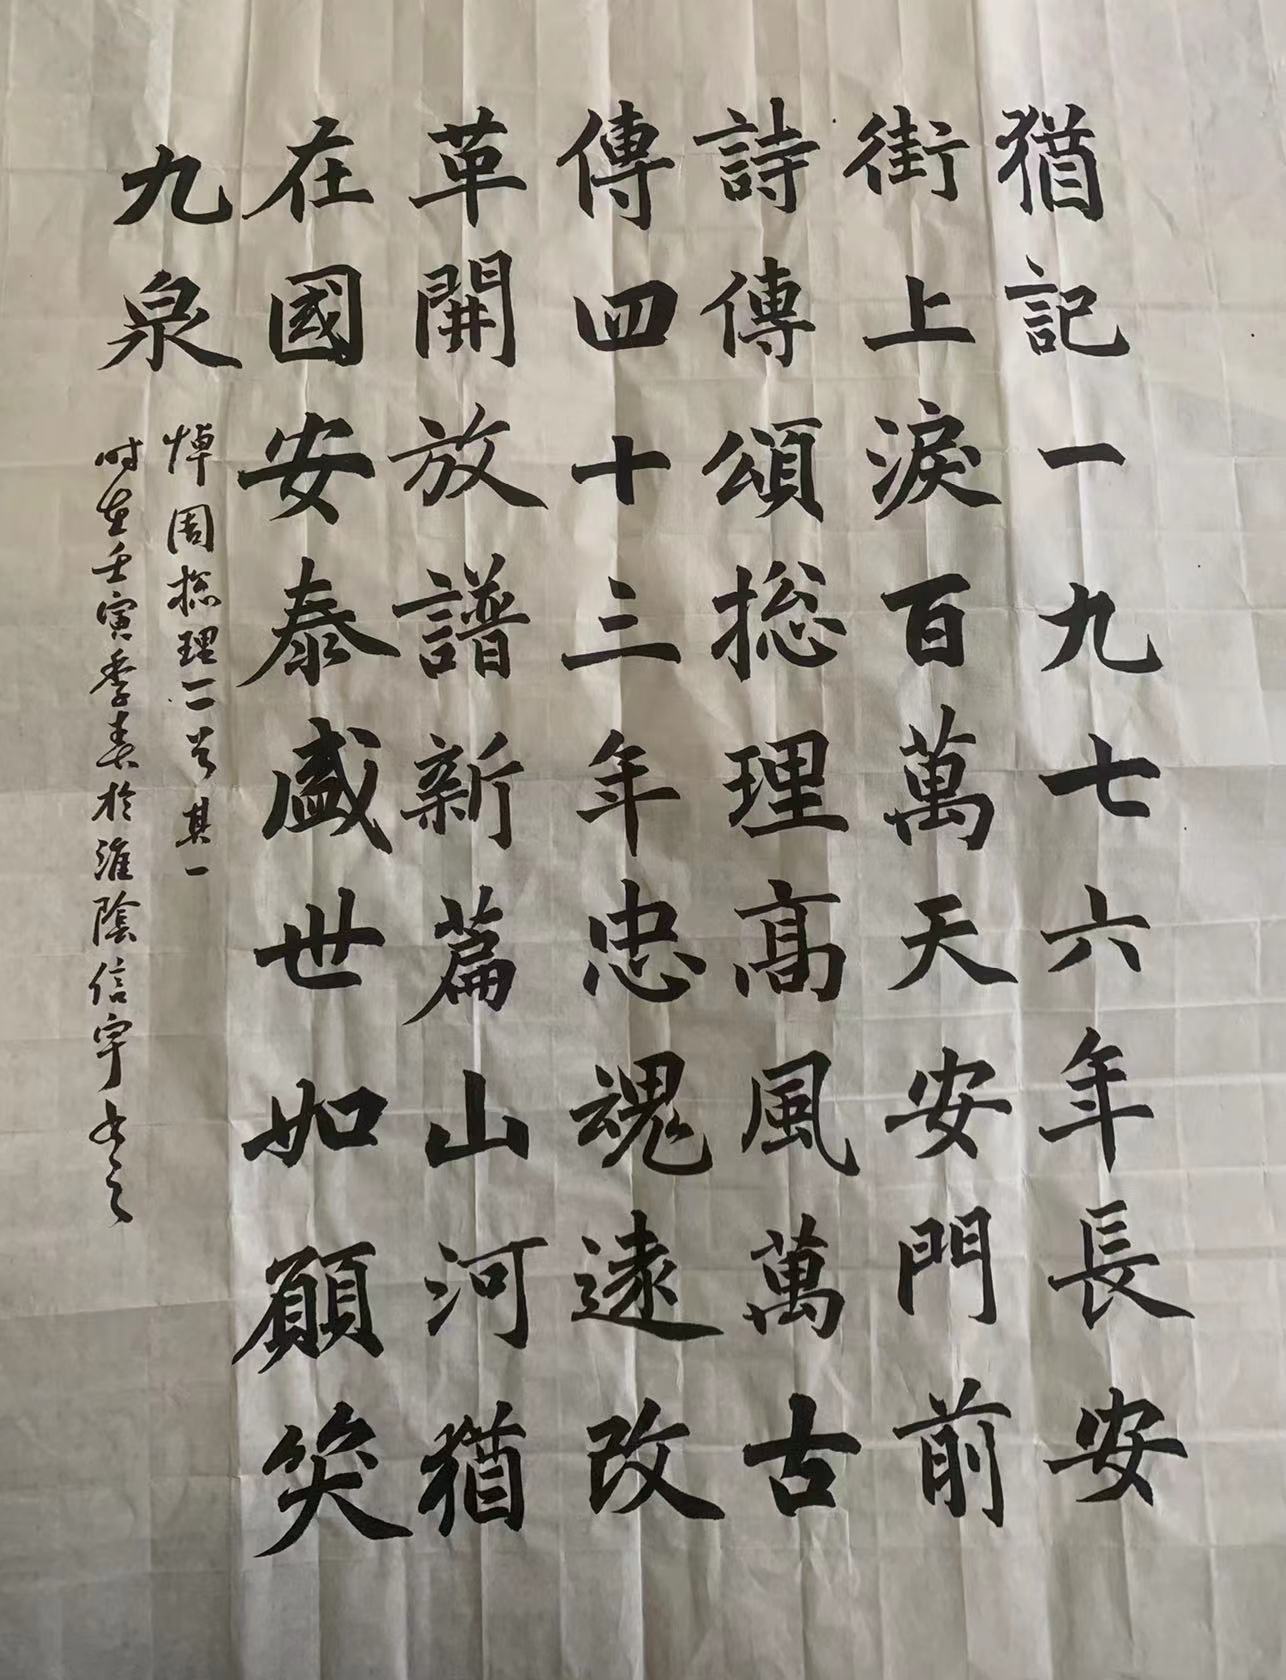 猶記一九七六年長安
街上淚百萬天安門前
詩傳頌捴理高風萬古
傳四十三年忠魂遠改
革開放譜新篇山河猶
在國安泰盛世如願笑
九泉
悼周捴理二首其一
時在壬寅季春於淮陰信宇書之